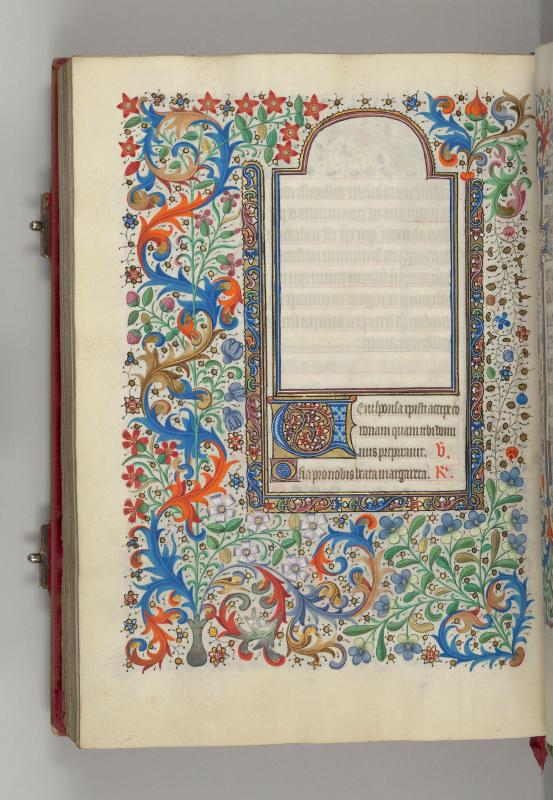 Veni sponsa xpisti accipe co
ronam quam tibi domi
nus preparauit. V.
Ora pro nobis beata margareta. R.